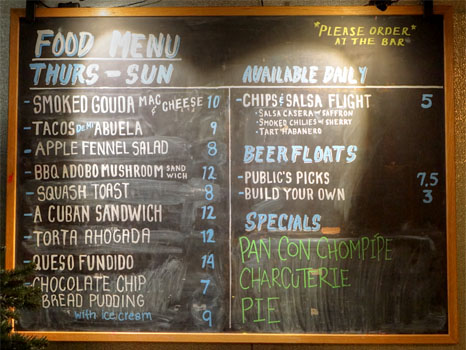 *PLEASE ORDER*
AT THE BAR
FOOD MENU
THURS - SUN
- SMOKED GOUDA MAC & CHEESE 10
- TACOS DE MI ABUELA 9
- APPLE FENNEL SALAD 8
- BBQ ADOBO MUSHROOM SANDWICH 12
- SQUASH TOAST 8
- A CUBAN SANDWICH 12
- TORTA AHOGADA 12
- QUESO FUNDIDO 14
- CHOCOLATE CHIP 7
BREAD PUDDING
with ice cream 9
AVAILABLE DAILY
- CHIPS & SALSA FLIGHT 5
• SALSA CASERA w/ SAFFRON
• SMOKED CHILIES w/ SHERRY
• TART HABANERO
BEER FLOATS
- PUBLIC'S PICKS 7.5
- BUILD YOUR OWN 3
SPECIALS
PAN CON CHOMPIPE
CHARCUTERIE
PIE